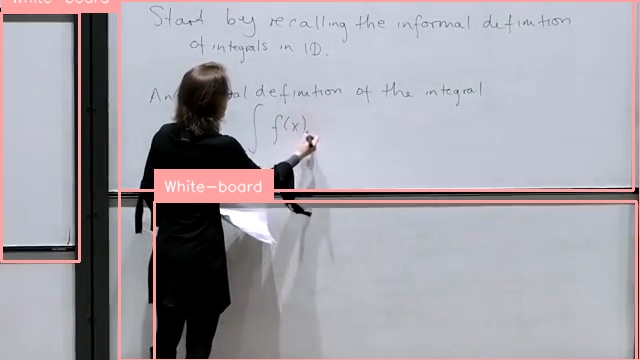 White-board
Start by recalling the informal definition
of integrals in 1D.
An definition of the integral
∫ f(x)
White-board